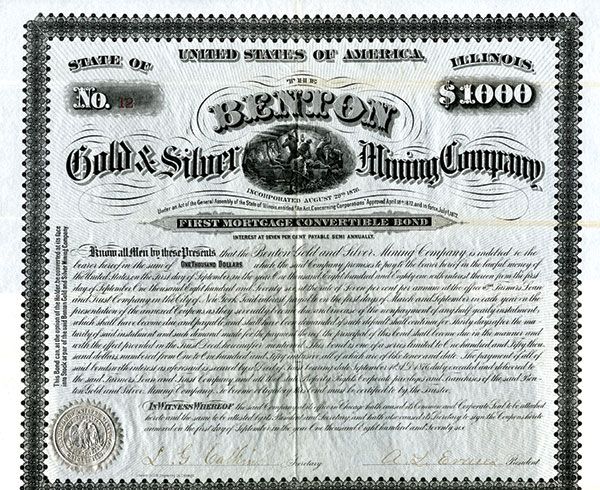 STATE OF
UNITED STATES OF AMERICA,
ILLINOIS.
No. 12
THE
$1000
BENTON
Gold & Silver Mining Company
INCORPORATED AUGUST 29th 1876.
Under an Act of the General Assembly of the State of Illinois, entitled "An Act, Concerning Corporations" Approved April 18th 1872, and in force July 1, 1872.
FIRST MORTGAGE CONVERTIBLE BOND
INTEREST AT SEVEN PER CENT PAYABLE SEMI ANNUALLY.
This Bond can, at the option of the Holder, be converted at its face
into Stock at par of the said Benton Gold and Silver Mining Company
Know all Men by these Presents that the Benton Gold and Silver Mining Company is indebted to the
bearer hereof in the sum of ONE THOUSAND DOLLARS which the said Company promises to pay to the bearer hereof in the lawful money of
the United States, on the first day of September, in the year of One Thousand Eight hundred and Eighty six with interest thereon from the first
day of September One thousand Eight hundred and Seventy six at the rate of Seven per cent per annum at the office of the Farmers Loan
and Trust Company in the City of New York. Said interest payable on the first days of March and September in each year on the
presentation of the annexed Coupons as they severally become due and in case of the nonpayment of any half yearly instalment
which shall have become due and payable and shall have been demanded if such default shall continue for thirty days after the ma-
turity of said instalment and such demand made for the payment thereof the principal of this bond shall become due in the manner and
with the effect provided in the
dollars numbered from One to One hundred and fifty inclusive, each of which are of like tenor and date. The payment of all of
said bonds with interest as aforesaid is secured by
the said Farmers Loan and Trust Company
ton Gold and Silver Mining Company.
IN WITNESS WHEREOF the said Company at its office in Chicago hath caused its Common and Corporate Seal to be attached
hereto and the same to be attested by its President and Secretary and hath also caused its Secretary to sign the Coupons hereto
annexed on the first day of September in the year One thousand Eight hundred and Seventy six.
Secretary
President